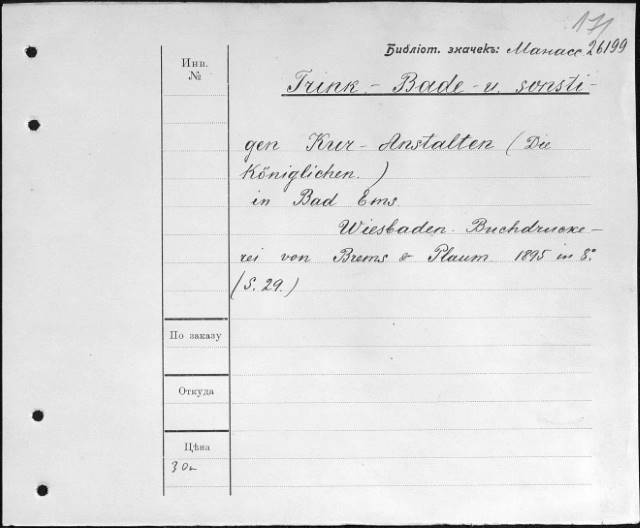 171
Библіот. значекъ: Манасс. 26199
Инв.
№
Trink - Bade - u. sonsti-
gen Kur - Anstalten (Die
Königlichen.)
in Bad Ems.
Wiesbaden. Buchdrucke-
rei von Brems & Plaum. 1895 in 8°.
(S. 29.)
По заказу
Откуда
Цѣна
30к